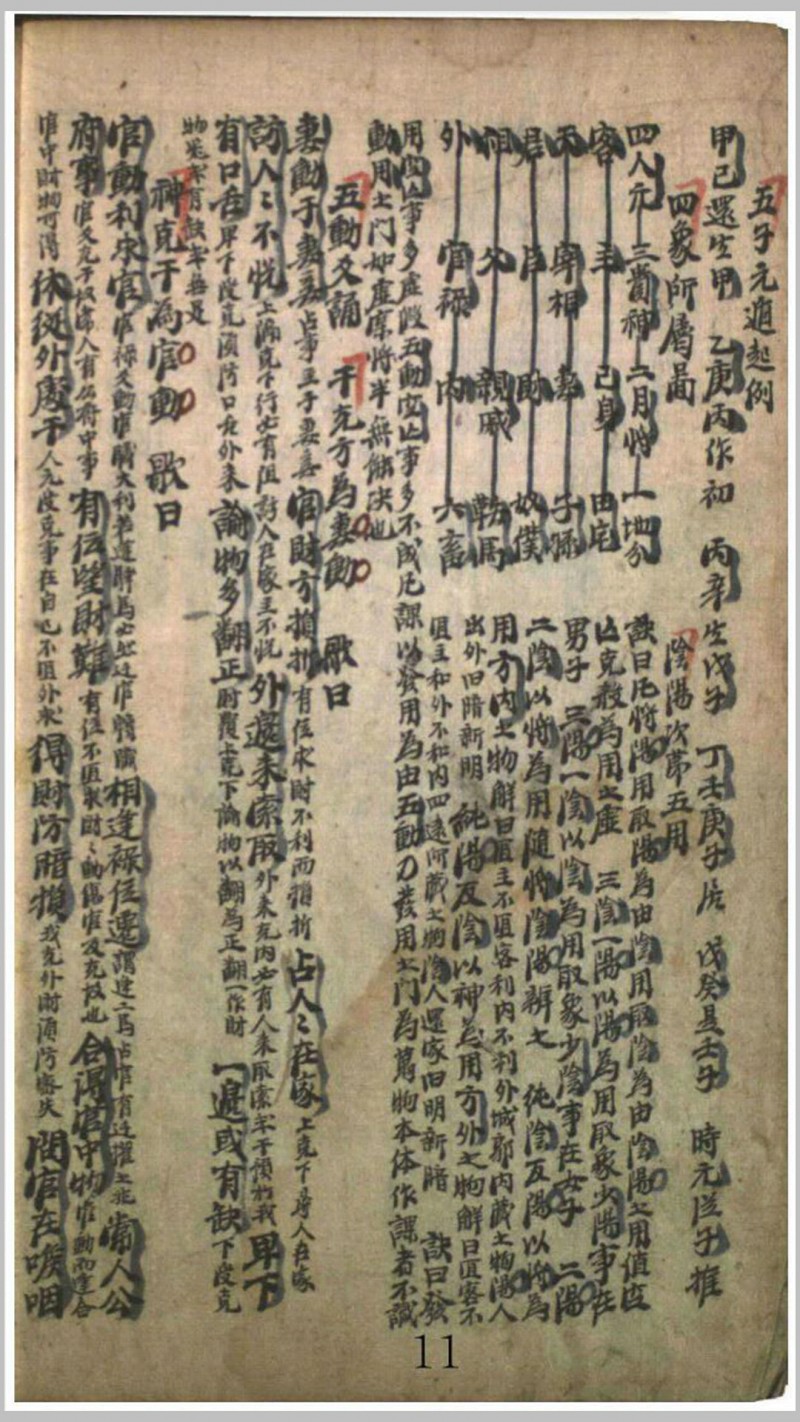 五子元遁起例
甲己還生甲 乙庚丙作初 丙辛生戊子 丁壬庚子居 戊癸是壬子 時元從子推
四象所屬畐 陰陽次第五用
四人元 三貴神 二月将 一地分
客 主 己身 田宅
天 宰相 妻 子孫
君 臣 財 奴僕
祖 父 親戚 鞍馬
外 官禄 内 六畜
訣曰凡将陽用取陽為由陰用取陰為由陰陽之用值
凶克殺為用之虚 三陰一陽以陽為用取象少陽事在
男子 三陽一陰以陰為用取象少陰事在女子 二陽
二陰以将為用隨将陰陽辨之 純陰反陽以将為
用方内之物解曰匪主不匪客利内不利外城郭内藏之物陽人
出外旧暗新明 純陽反陰以神為用方外之物解曰匪客不
匪主和外不和内四遠所藏之物陰人還家旧明新暗 訣曰發
用空亡事多虚假五動空亡事多不成凡課以發用為由五動乃發用之門為萬物本体作課者不識
動用之門如虚席将半無能决也
五動爻誦 干克方為妻動 歌曰
妻動于妻妾占事主于妻妾官財方損折有位求財不利而損折占人人在家上克下尋人在家
訪人人不悦上海克下行必有阻訪人在家主不悦外遷来索取外来克内必有人来取索宅干預物我卑下
有口舌卑下受克須防口舌外来論物多翻正財覆上克下論物以翻為正翻一作財一邊或有缺下受克
物宅宅有缺宅無是
神克干為官動 歌曰
官動利求官官禄爻動官職大利若逢驛馬必然迁官轉職相逢禄位遷謂逢二馬占官有迁擢之兆常人公
府事官爻克干故常人有公府中事有位望財難有位不匪求財財動傷官爻克故也合得官中物官動而逢合
官中財物可得休從外處干人元受克事在自己不匪外求得財防暗損我克外財須防暗失問官在喉咽
11